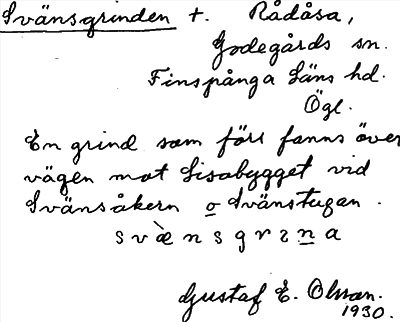 Svänsgrinden t. Rådåsa,
Godegårds sn.
Finspånga läns hd.
Ögl.
En grind som förr fanns över
vägen mot Lisabygget vid
Svänsåkern o Svänstugan.
svæ̀nsgrɪna
Gustaf E. Olsson.
1930.